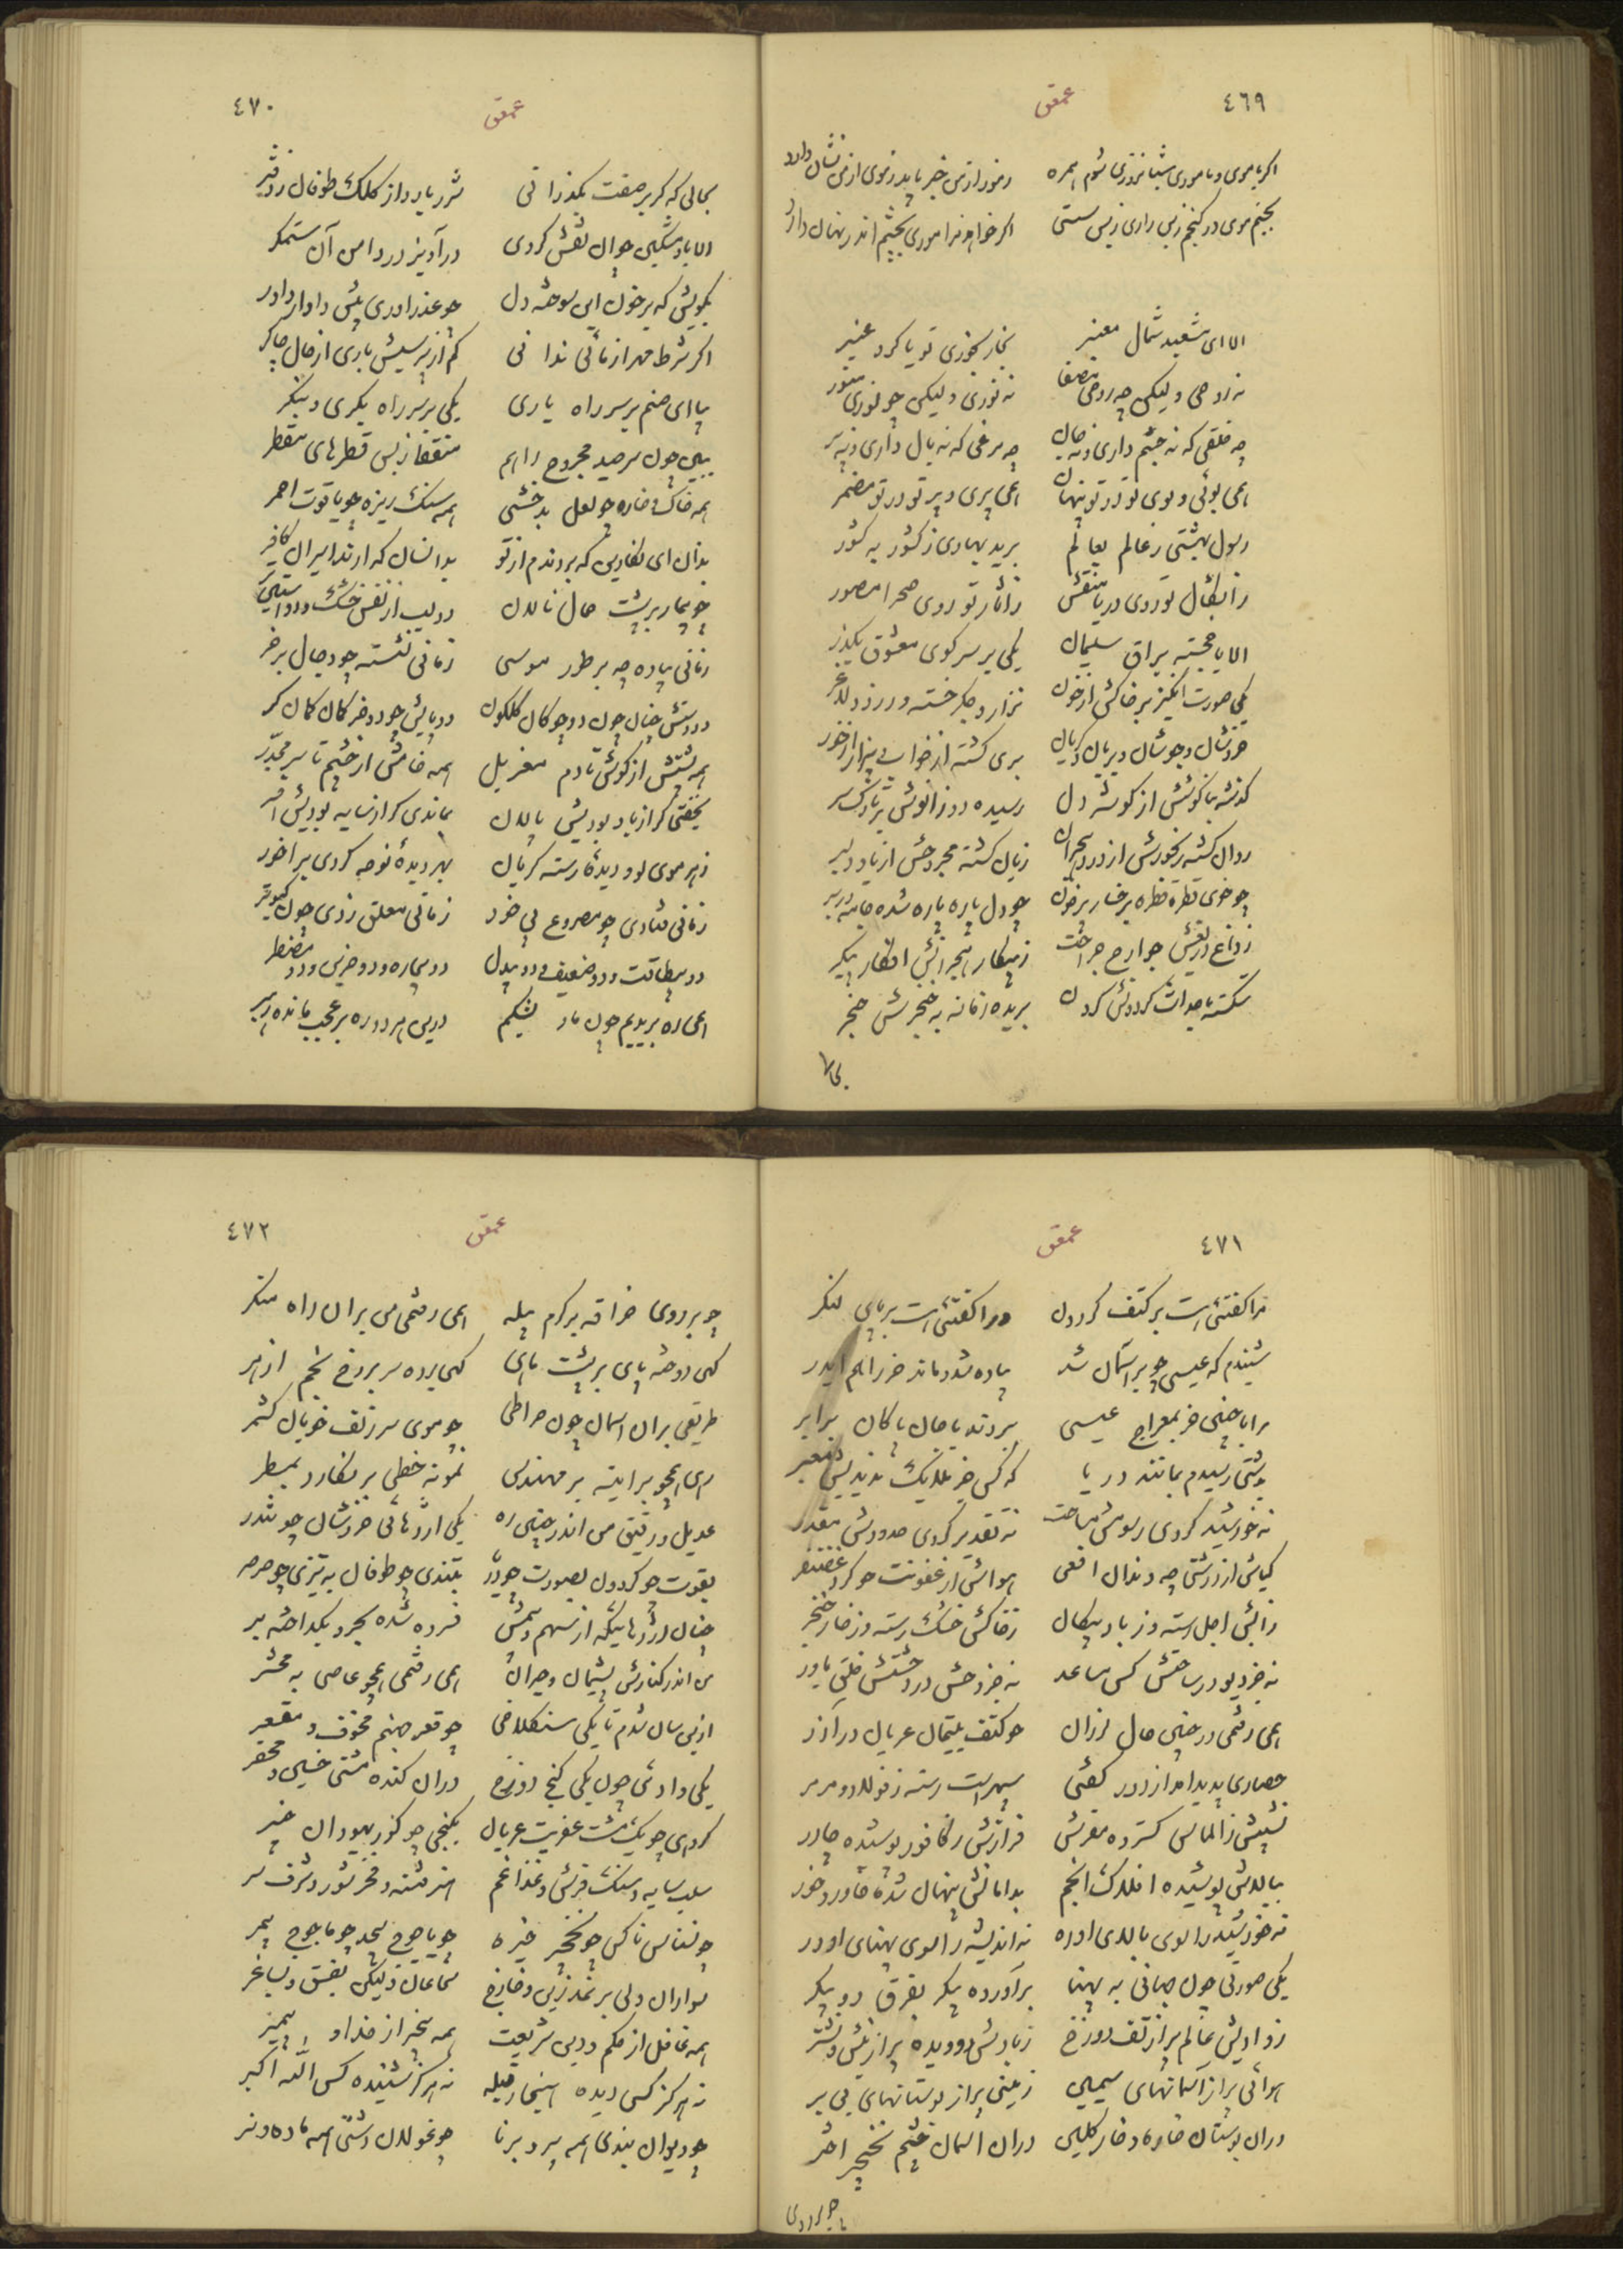 ٤٦٩
عمعق
اگر با موی و با موری شبانروزی شوم همره
نه مور از من خبر یابد نه موی از من نشان دارد
بچشم موی در گنجم ز بس زاری ز بس سستی
اگر خواهد مرا موری بچشم اندر نهان دارد
الا ای مشعبد شمال معنبر
بخار بخوری تو یا گرد عنبر
نه روحی ولیکن چو روحی مصفا
نه نوری ولیکن چو نوری منور
چه خلقی که نه چشم داری و نه جان
چه مرغی که نه بال داری و نه پر
همی بوئی و بوی تو در تو پنهان
همی پری و پر تو در تو مضمر
رسول بهشتی ز عالم بعالم
برید بهاری ز کشور به کشور
روی دریا منقش
ز آثار تو روی صحرا مصور
الا یا خجسته براق سلیمان
یکی بر سر کوی معشوق بگذر
یکی صورت انگیز بر خاکش از خون
نزار و جگر خسته و زرد و لاغر
خروشان و جوشان و بریان و گریان
بری گشته از خواب و بیزار از خور
گذشته بناگوشش از گوشه دل
رسیده دو زانوش بر تارک سر
روان گشته رنجورش از درد هجران
زبان گشته مجروحش از یاد دلبر
چو خوی قطره قطره بر خسار بر خون
چو دل پاره پاره شده جامه در بر
ز داغ دریغش جوارح جراحت
ز پیکار هجرانش افکار پیکر
شکسته بامید گردونش گردن
بریده زمانه به خنجرش حنجر
٤٧٠
عمعق
بحالی که گر بر صفت بگذرانی
شرر بارد از کلک طوفان ز دفتر
الا باد مشکین چو این نقش کردی
درآویز در دامن آن ستمگر
بگویش که بر خون این سوخته دل
چو عذر آوری پیش دادار داور
اگر شرط مهر آزمائی ندانی
کم از پرسش باری از حال چاکر
بیا ای صنم بر سر راه باری
یکی بر سر راه بگری و بنگر
ببین چون سر صید مجروح راهم
منقط ز بس قطرهای مقطر
همه خاک و خاره چو لعل بدخشی
همه سنگ ریزه چو یاقوت احمر
بدان ای نگارین که بردندم از تو
بدانسان که آرند اسیران کافر
چو بیمار بر پشت جمال نالان
دو لب از نفس خشک و دو آستین تر
زمانی پیاده چو بر طور موسی
زمانی نشسته چو دجال بر خر
دو دستش چنان چون دو چوگان گلگون
دو پایش چو دو خر کمان کمان گر
همه پشتش از گوش تا دم مغربل
همه خامش از چشم تا سر مجدر
بخفتی گر از باد بودیش پالان
بماندی گر از سایه بودیش افسر
ز هر موی او دیدهٔ رسته گریان
بهر دیدهٔ نوحه کردی بر آخور
زمانی فتادی چو مصروع بی خود
زمانی معلق زدی چون کبوتر
دو بیطاقت و دو ضعیف و دو بیدل
دو بیچاره و دو حزین و دو مضطر
همی ره بریدیم چون مار بشکم
درین هر دو ره بر عجب مانده رهبر
٤٧١
عمعق
مرا گفتی است بر کتف گردون
ورا گفتی است بر پای لنگر
شنیدم که عیسی چو بر آسمان شد
پیاده شد و ماند خر را هم ایدر
مرا با چنین خر بمعراج عیسی
ببردند با جان پاکان برابر
بدشتی رسیدم بمانند دریا
که کس جز ملایک ندیدیش معبر
نه خورشید کردی رسومش مساحت
نه تقدیر کردی حدودش مقدر
گیاش از درشتی چو دندان افعی
هوایش از عفونت چو کرد غضنفر
ز آبش اجل رسته وز باد پیکان
ز خاکش خسک رسته وز خار خنجر
نه جز دیو در ساحتش کس مساعد
نه جز وحش در دشتش خلق یاور
همی رفتمی در چنین حال لرزان
چو کتف یتیمان عریان در آذر
حصاری پدید آمد از دور گفتی
سپهر است رسته ز فولاد و مرمر
نشیبش ز الماس گسترده مفرش
فرازش ز کافور پوشیده چادر
ببالاش پوشیده افلاک انجم
بدامانش پنهان شده خاور و خور
نه خورشید را سوی بالای او ره
نه اندیشه را سوی پهنای او در
یکی صورتی چون جهانی به پهنا
برآورده پیکر بفرق دو پیکر
ز وادیش عالم پر از تف دوزخ
ز بادش دو دیده پر از نیش و نشتر
هوائی پر از آسمانهای سیمین
زمینی پر از بوستانهای بی بر
در آن بوستان خاره و خار گلبن
در آن آسمان چشم نخجیر اختر
چو بر روی
٤٧٢
عمعق
چو بر روی خراقه بر کرم پیله
همی رفتمی من بر آن راه منکر
گهی دوخته پای بر پشت ماهی
گهی برده سر بر رخ نجم ازهر
طریقی بر آن آسمان چون صراطی
چو موی سر زلف خوبان کشمر
رهی همچو بر آینه بر مهندس
نمونه خطی بر نگارد بمسطر
عدیل و رفیق من اندر چنین ره
یکی اژدهائی خروشان چو تندر
بقوت چو گردون بصورت چو دریا
بتندی چو طوفان به تیزی چو صرصر
چنان اژدهائیکه از سهم و بیمش
فسرده شده بحر و بگداخته بر
من اندر کنارش پشیمان و حیران
همی رفتمی همچو عاصی به محشر
ازین سان شدم تا یکی سنگلاخی
چو قعر جهنم مخوف و مقعر
یکی وادئی چون یکی کنج دوزخ
در آن کنده مشتی خسیس و محقر
گروهی چو یک مشت عفریت عریان
بکنجی چو گور یهودان خیبر
سلب سایه و سنگ فرش و غذا غم
هنر فتنه و فخر شور و شرف شر
چو نسناس ناکس چو نخجیر خیره
چو یاجوج بیحد چو ماجوج بیمر
سواران ولی بر نمد زین و خارخ
شجاعان ولیکن بفسق و بساغر
همه غافل از حکم و دین شریعت
همه بیخبر از خدا و پیمبر
نه هرگز کسی دیده هنجار قبله
نه هرگز شنیده کس الله اکبر
چو دیوان بندی همه پیر و برنا
چو غولان دشتی همه ماده و نر